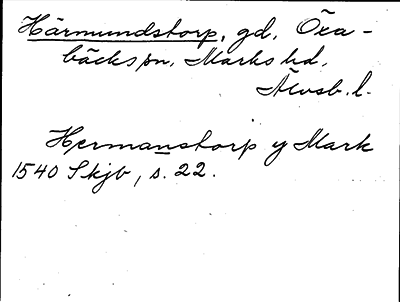 Härmundstorp, gd, Öxa-
bäcks sn, Marks hd,
Älvsb. l.
Hermanstorp y Mark
1540 Skjb, s. 22.